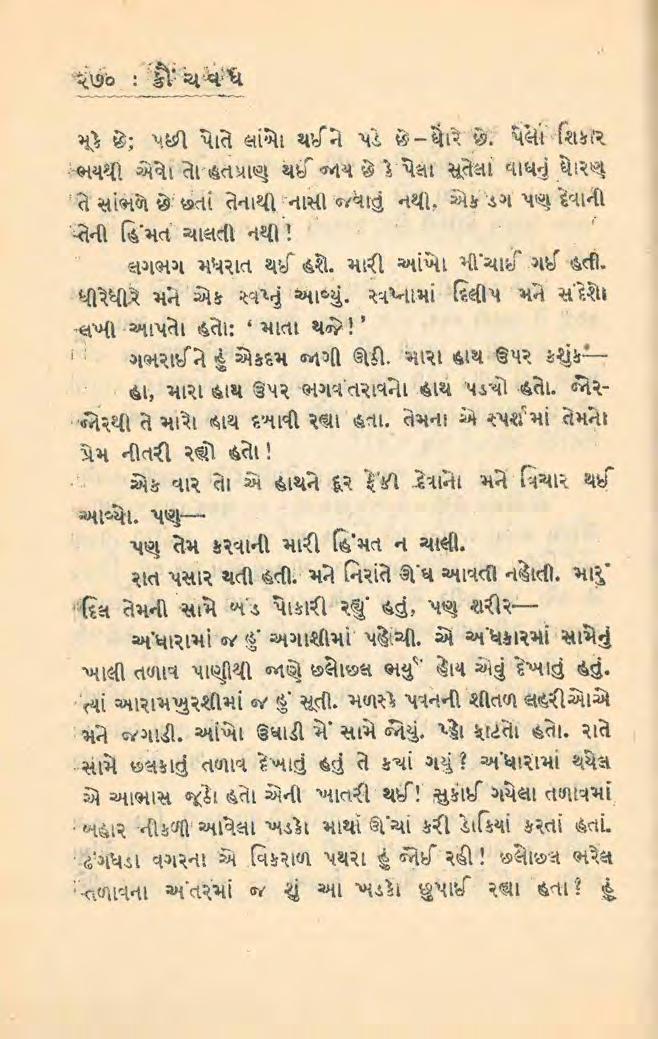 ૨૭૦ : ક્રૌંચવધ
મૂકે છે; પછી પોતે લાંબો થઈને પડે છે–ઘોરે છે. પેલો શિકાર
ભયથી એવો તો હતપ્રાણ થઈ જાય છે કે પેલા સૂતેલા વાઘનું ઘોરણ
તે સાંભળે છે છતાં તેનાથી નાસી જવાતું નથી. એક ડગ પણ દેવાની
તેની હિંમત ચાલતી નથી!
લગભગ મધરાત થઈ હશે. મારી આંખો મીંચાઈ ગઈ હતી.
ધીરેધીરે મને એક સ્વપ્નું આવ્યું. સ્વપ્નામાં દિલીપ મને સંદેશો
લખી આપતો હતો: ‘માતા થજે!’
ગભરાઈને હું એકદમ જાગી ઊઠી. મારા હાથ ઉપર કશુંક—
હા, મારા હાથ ઉપર ભગવંતરાવનો હાથ પડ્યો હતો. જોર-
જોરથી તે મારો હાથ દબાવી રહ્યા હતા. તેમના એ સ્પર્શમાં તેમનો
પ્રેમ નીતરી રહ્યો હતો!
એક વાર તો એ હાથને દૂર ફેંકી દેવાનો મને વિચાર થઈ
આવ્યો. પણ—
પણ તેમ કરવાની મારી હિંમત ન ચાલી.
રાત પસાર થતી હતી. મને નિરાંતે ઊંઘ આવતી નહોતી. મારું
દિલ તેમની સામે બંડ પોકારી રહ્યું હતું, પણ શરીર—
અંધારામાં જ હું અગાશીમાં પહોંચી. એ અંધકારમાં સામેનું
ખાલી તળાવ પાણીથી જાણે છલોછલ ભર્યું હોય એવું દેખાતું હતું.
ત્યાં આરામખુરશીમાં જ હું સૂતી. મળસ્કે પવનની શીતળ લહરીઓએ
મને જગાડી. આંખો ઉઘાડી મેં સામે જોયું. પ્હો ફાટતો હતો. રાતે
સામે છલકાતું તળાવ દેખાતું હતું તે કયાં ગયું? અંધારામાં થયેલ
એ આભાસ જૂઠો હતો એની ખાતરી થઈ! સુકાઈ ગયેલા તળાવમાં
બહાર નીકળી આવેલા ખડકો માથાં ઊંચાં કરી ડોકિયાં કરતાં હતાં.
ઢંગધડા વગરના એ વિકરાળ પથરા હું જોઈ રહી! છલોછલ ભરેલ
તળાવના અંતરમાં જ શું આ ખડકો છુપાઈ રહ્યા હતા? હું